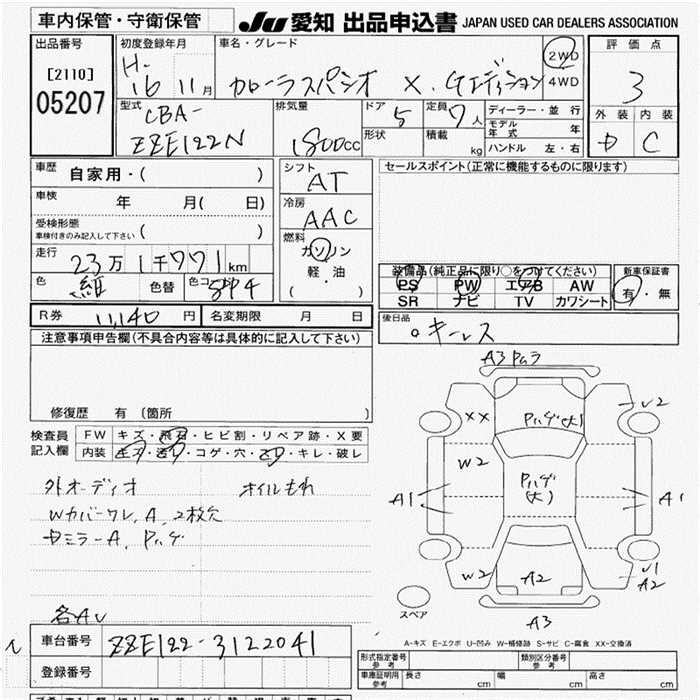 車内保管・守衛保管
JU 愛知 出品申込書 JAPAN USED CAR DEALERS ASSOCIATION
出品番号
[2110]
05207
初度登録年月
H-16 11月
車名・グレード
カローラスパシオ X. Gエディション
2WD
4WD
評価点
3
外装 内装
D C
型式
CBA-
ZZE122N
排気量
1800cc
ドア 5
形状
定員 7人
積載 kg
ディーラー・並行
モデル年式 年
ハンドル 左・右
車歴 自家用・( )
車検 年 月( 日)
受検形態
車検付きのみ記入して下さい ( )
走行 23万1千771km
色 紺 色替 色コード 8P4
シフト
AT
冷房
AAC
燃料
ガソリン
軽・油
( )
セールスポイント(正常に機能するものに限ります)
装備品(純正品に限り○をつけてください)
PS PW エアB AW
SR ナビ TV カワシート
新車保証書
有・無
R券 11,140円 名変期限 月 日
後日品
○キーレス
注意事項申告欄(不具合内容等は具体的に記入して下さい)
修復歴 有 [箇所 ]
検査員記入欄
FW キズ・飛石・ヒビ割・リペア跡・X要
内装 キズ・汚れ・コゲ・穴・スレ・キレ・破レ
外オーディオ オイルもれ
Wカバーワレ, A, 2枚欠
Dミラー A, Pハゲ
各AU
A3 Pムラ
XX
Pハゲ(大)
U2
W2
Pハゲ(大)
A1
A1
W2
A2
U1
A2
スペア
A3
A-キズ E-エクボ U-凹み W-補修跡 S-サビ C-腐食 XX-交換済
車台番号 ZZE122-3122041
登録番号
形式指定番号 参考
類別区分番号 参考
車庫証明用 参考 長さ cm 幅 cm 高さ cm